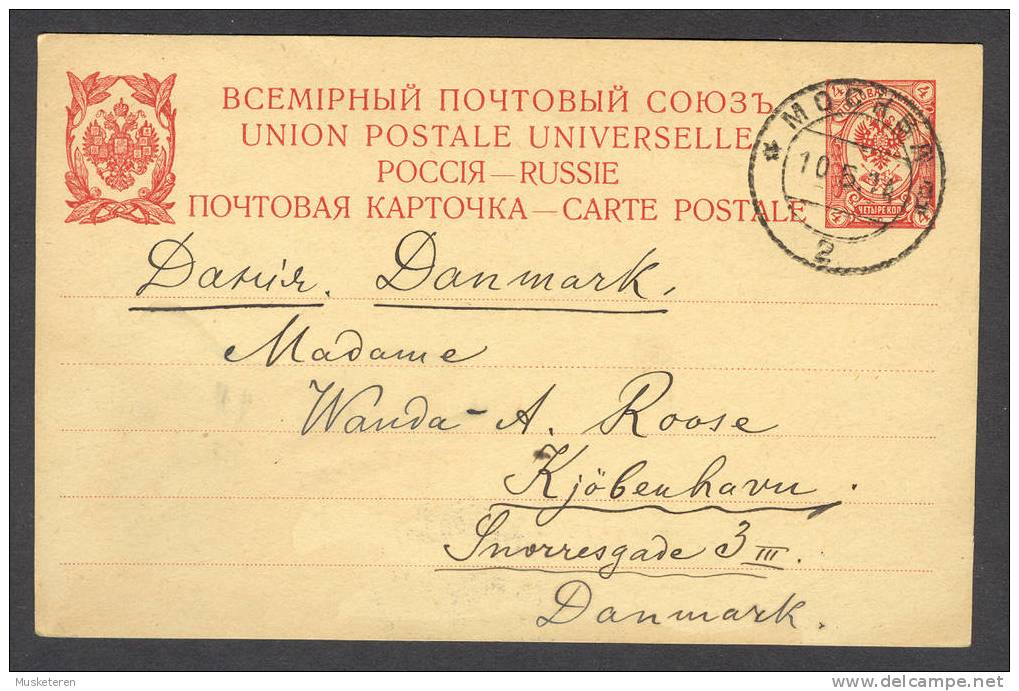 ВСЕМІРНЫЙ ПОЧТОВЫЙ СОЮЗЪ
UNION POSTALE UNIVERSELLE
РОССІЯ—RUSSIE
ПОЧТОВАЯ КАРТОЧКА—CARTE POSTALE
4 4
ЧЕТЫРЕ КОП
4 4
* МОСКВА
10.5.14
2
Данія. Danmark.
Madame
Wanda A. Roose
Kjöbenhavn.
Snorresgade 3 III.
Danmark.
Musketeren
delcampe.net